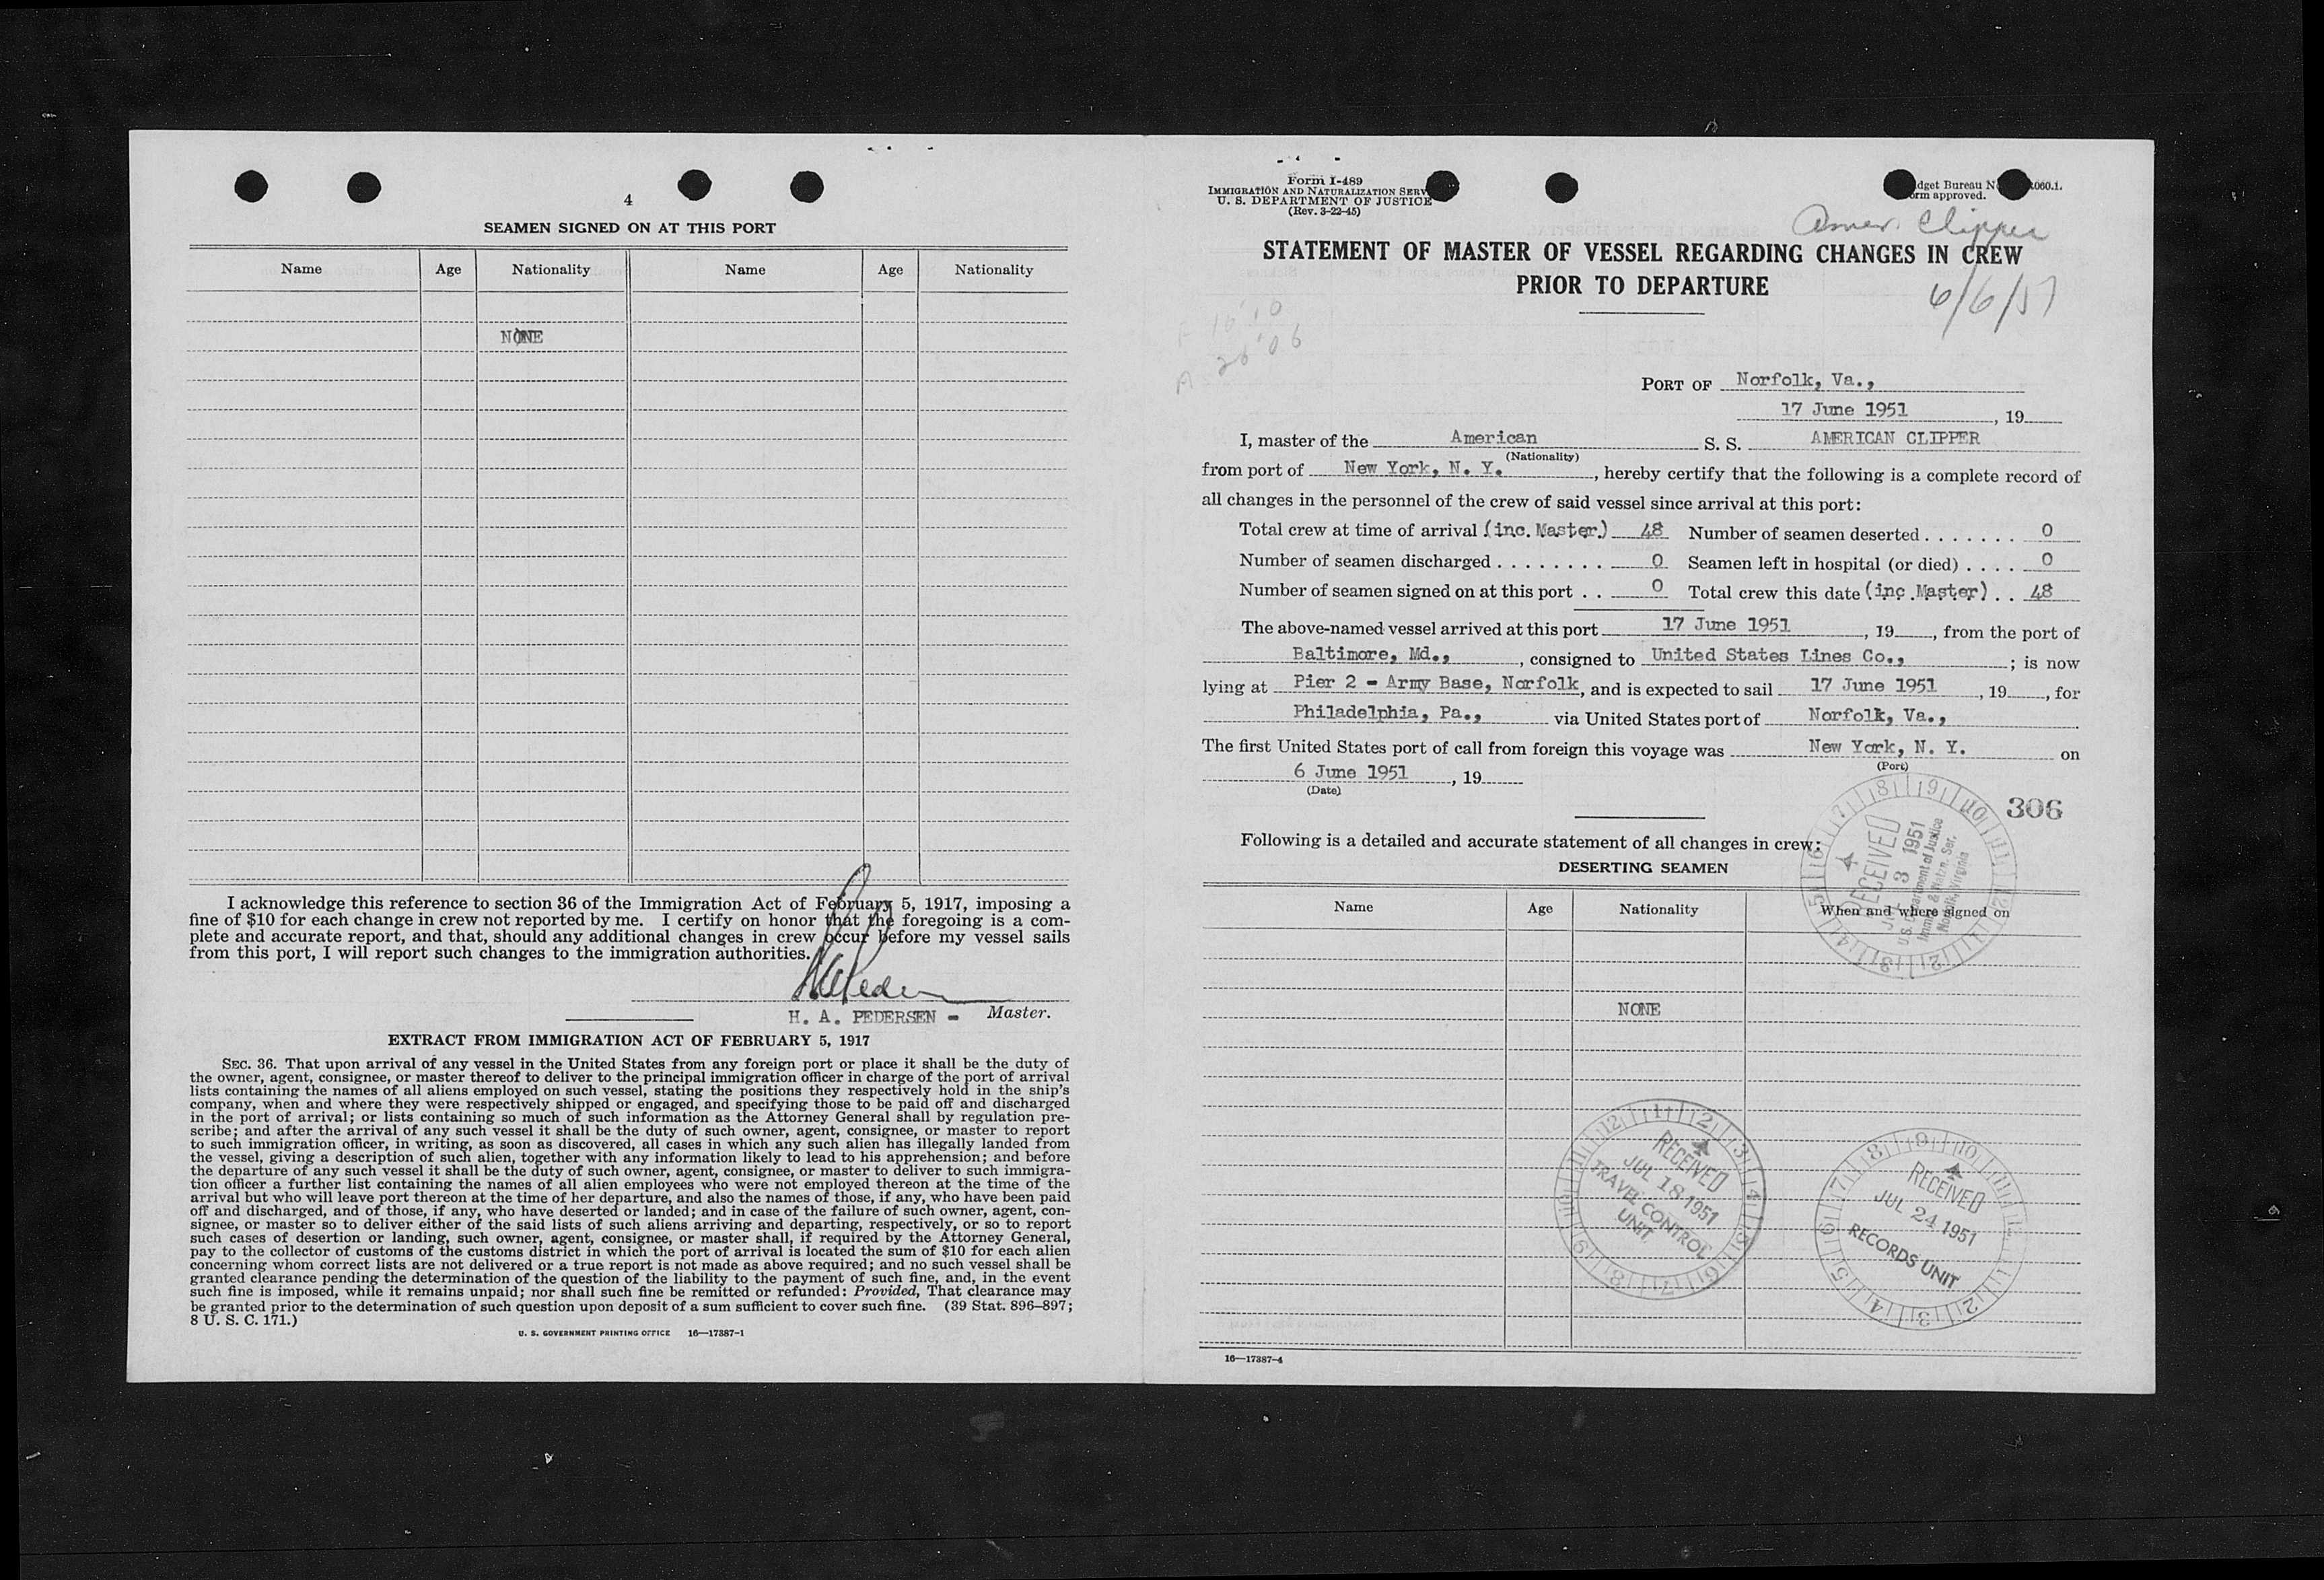 4
SEAMEN SIGNED ON AT THIS PORT
Name Age Nationality Name Age Nationality
NONE
I acknowledge this reference to section 36 of the Immigration Act of February 5, 1917, imposing a
fine of $10 for each change in crew not reported by me. I certify on honor that the foregoing is a com-
plete and accurate report, and that, should any additional changes in crew occur before my vessel sails
from this port, I will report such changes to the immigration authorities.
H. A. PEDERSEN - Master.
EXTRACT FROM IMMIGRATION ACT OF FEBRUARY 5, 1917
SEC. 36. That upon arrival of any vessel in the United States from any foreign port or place it shall be the duty of
the owner, agent, consignee, or master thereof to deliver to the principal immigration officer in charge of the port of arrival
lists containing the names of all aliens employed on such vessel, stating the positions they respectively hold in the ship's
company, when and where they were respectively shipped or engaged, and specifying those to be paid off and discharged
in the port of arrival; or lists containing so much of such information as the Attorney General shall by regulation pre-
scribe; and after the arrival of any such vessel it shall be the duty of such owner, agent, consignee, or master to report
to such immigration officer, in writing, as soon as discovered, all cases in which any such alien has illegally landed from
the vessel, giving a description of such alien, together with any information likely to lead to his apprehension; and before
the departure of any such vessel it shall be the duty of such owner, agent, consignee, or master to deliver to such immigra-
tion officer a further list containing the names of all alien employees who were not employed thereon at the time of the
arrival but who will leave port thereon at the time of her departure, and also the names of those, if any, who have been paid
off and discharged, and of those, if any, who have deserted or landed; and in case of the failure of such owner, agent, con-
signee, or master so to deliver either of the said lists of such aliens arriving and departing, respectively, or so to report
such cases of desertion or landing, such owner, agent, consignee, or master shall, if required by the Attorney General,
pay to the collector of customs of the customs district in which the port of arrival is located the sum of $10 for each alien
concerning whom correct lists are not delivered or a true report is not made as above required; and no such vessel shall be
granted clearance pending the determination of the question of the liability to the payment of such fine, and, in the event
such fine is imposed, while it remains unpaid; nor shall such fine be remitted or refunded: Provided, That clearance may
be granted prior to the determination of such question upon deposit of a sum sufficient to cover such fine. (39 Stat. 896–897;
8 U. S. C. 171.)
U. S. GOVERNMENT PRINTING OFFICE 16—17387-1
Form I-489
IMMIGRATION AND NATURALIZATION SERV
U. S. DEPARTMENT OF JUSTICE
(Rev. 3-22-45)
dget Bureau N 060.1.
orm approved.
Amer. Clipper
STATEMENT OF MASTER OF VESSEL REGARDING CHANGES IN CREW
PRIOR TO DEPARTURE
6/6/51
PORT OF Norfolk, Va.,
17 June 1951, 19
I, master of the American S. S. AMERICAN CLIPPER
(Nationality)
from port of New York, N. Y., hereby certify that the following is a complete record of
all changes in the personnel of the crew of said vessel since arrival at this port:
Total crew at time of arrival (inc. Master) 48 Number of seamen deserted . . . . . . . 0
Number of seamen discharged . . . . . . . . 0 Seamen left in hospital (or died) . . . . 0
Number of seamen signed on at this port . . 0 Total crew this date (inc. Master) . . 48
The above-named vessel arrived at this port 17 June 1951, 19, from the port of
Baltimore, Md., , consigned to United States Lines Co., ; is now
lying at Pier 2 - Army Base, Norfolk, and is expected to sail 17 June 1951, 19, for
Philadelphia, Pa., via United States port of Norfolk, Va.,
The first United States port of call from foreign this voyage was New York, N. Y. on
(Port)
6 June 1951, 19
(Date)
306
RECEIVED
3 1951
U.S. Department of Justice
Immig. & Natzn. Ser.
Norfolk, Virginia
Following is a detailed and accurate statement of all changes in crew:
DESERTING SEAMEN
Name Age Nationality When and where signed on
NONE
RECEIVED
JUL 18 1951
TRAVEL CONTROL
UNIT
RECEIVED
JUL 24 1951
RECORDS UNIT
16—17387-4